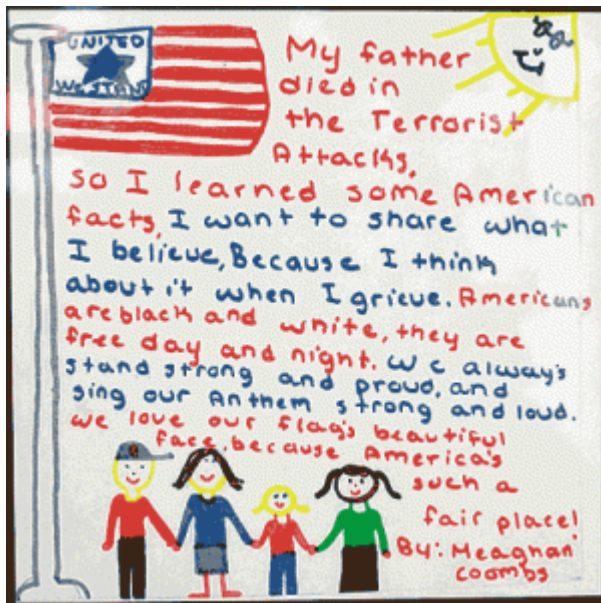 UNITED
WE STAND
My father
died in
the Terrorist
Attacks,
so I learned some American
facts, I want to share what
I believe, Because I think
about it when I grieve. Americans
are black and white, they are
free day and night. We always
stand strong and proud, and
sing our Anthem strong and loud.
we love our flag's beautiful
face, because America's
such a
fair place!
By: Meaghan
Coombs